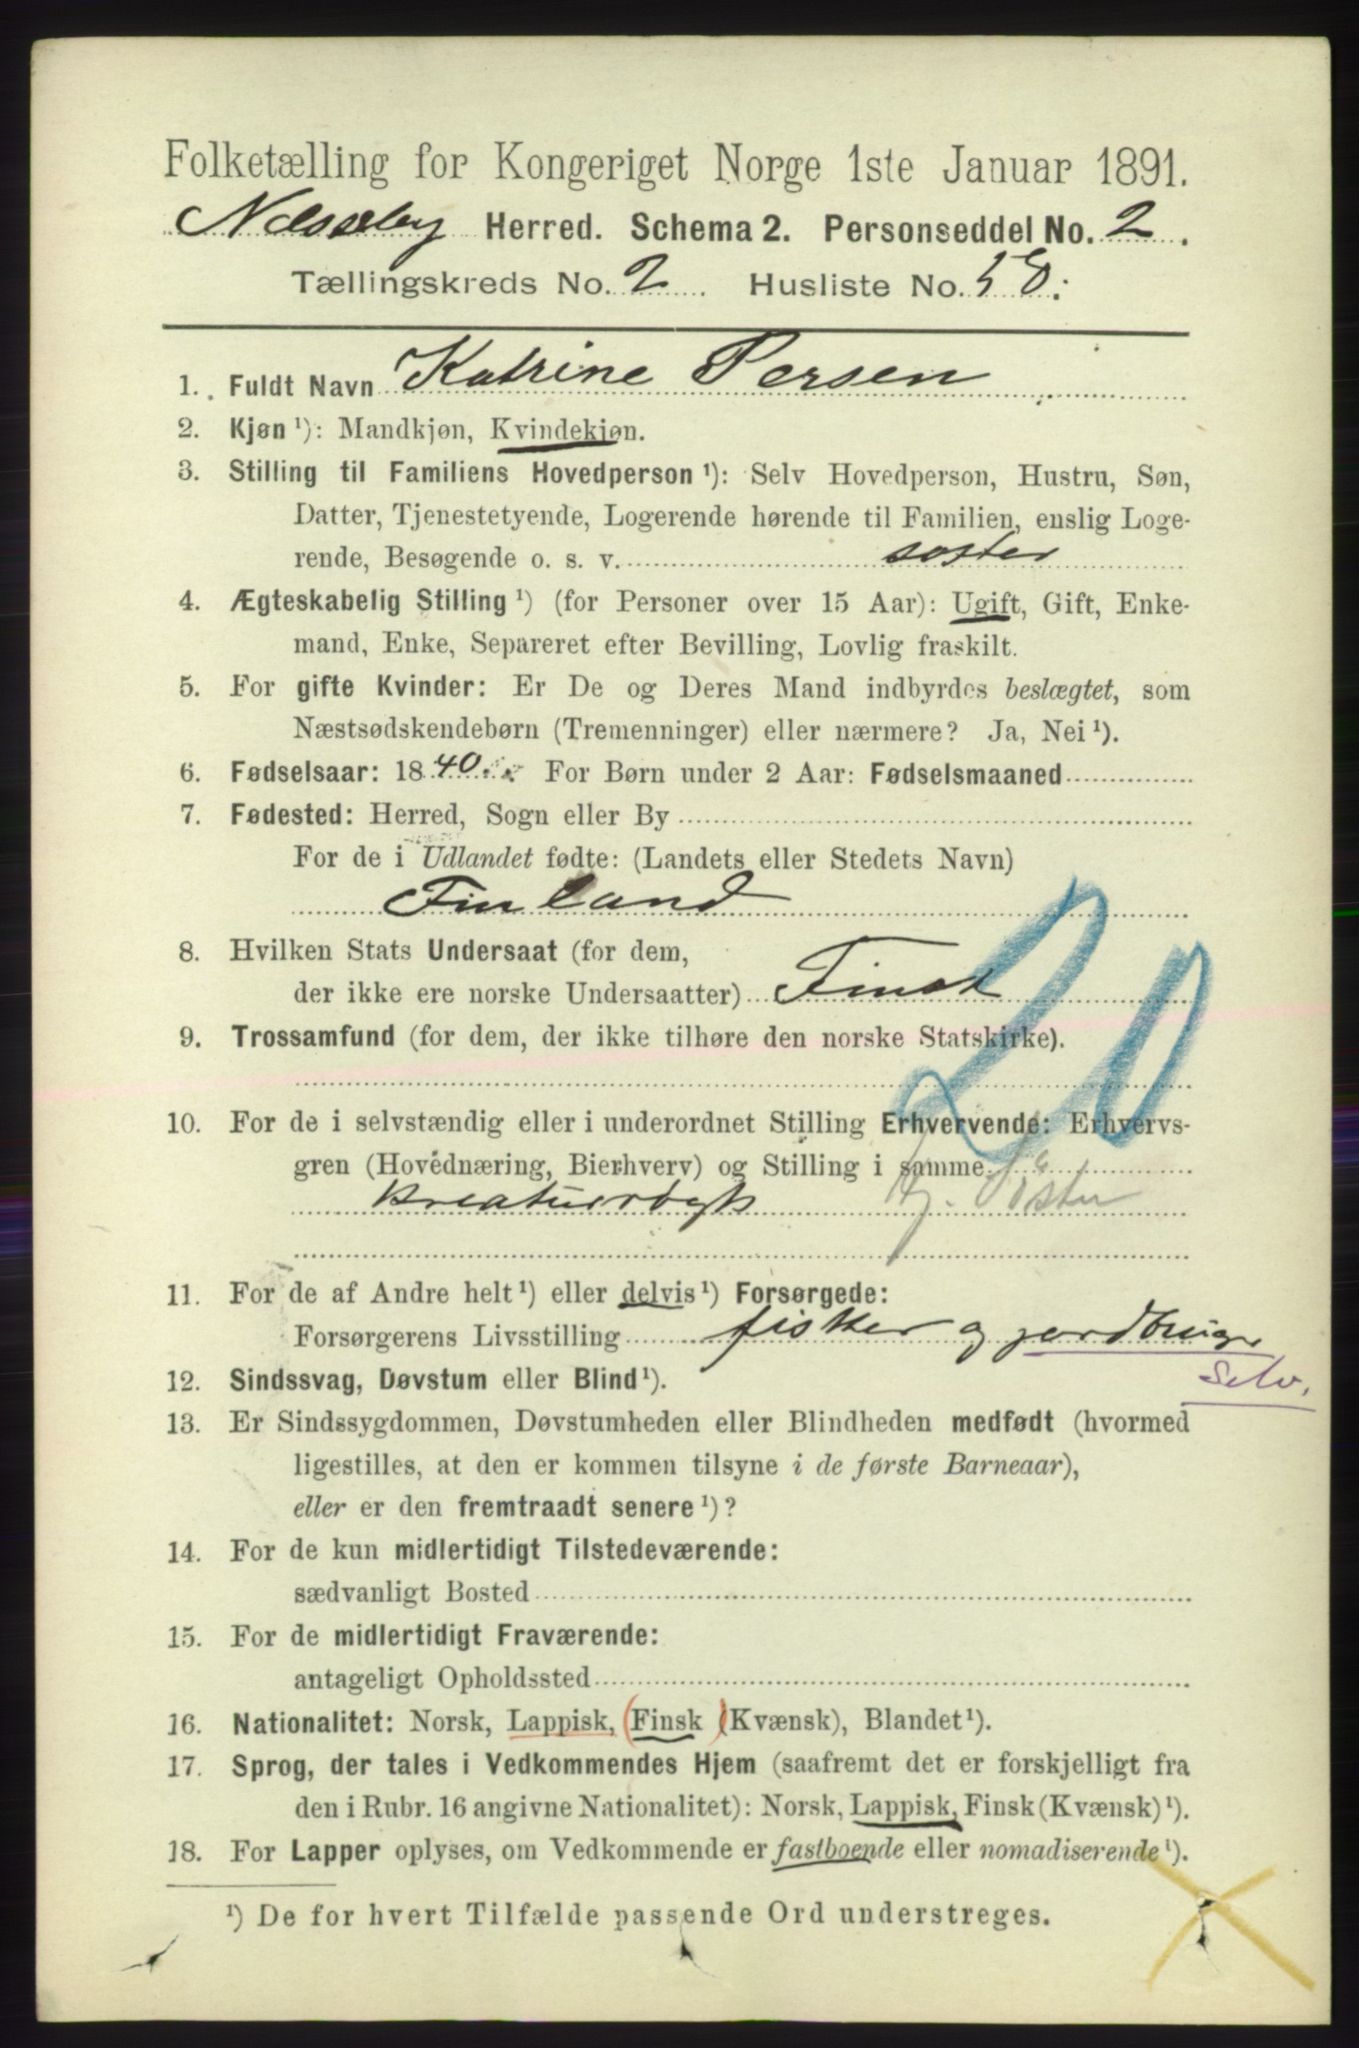 Folketælling for Kongeriget Norge 1ste Januar 1891.
Næsseby Herred. Schema 2. Personseddel No. 2.
Tællingskreds No. 2 Husliste No. 58.
1. Fuldt Navn Katrine Persen
2. Kjøn ¹): Mandkjøn, Kvindekjøn.
3. Stilling til Familiens Hovedperson ¹): Selv Hovedperson, Hustru, Søn,
Datter, Tjenestetyende, Logerende hørende til Familien, enslig Loge-
rende, Besøgende o. s. v. søster
4. Ægteskabelig Stilling ¹) (for Personer over 15 Aar): Ugift, Gift, Enke-
mand, Enke, Separeret efter Bevilling, Lovlig fraskilt.
5. For gifte Kvinder: Er De og Deres Mand indbyrdes beslægtet, som
Næstsødskendebørn (Tremenninger) eller nærmere? Ja, Nei ¹).
6. Fødselsaar: 1840. For Børn under 2 Aar: Fødselsmaaned
7. Fødested: Herred, Sogn eller By
For de i Udlandet fødte: (Landets eller Stedets Navn)
Finland
8. Hvilken Stats Undersaat (for dem,
der ikke ere norske Undersaatter) Finsk
20
9. Trossamfund (for dem, der ikke tilhøre den norske Statskirke).
10. For de i selvstændig eller i underordnet Stilling Erhvervende: Erhvervs-
gren (Hovednæring, Bierhverv) og Stilling i samme
kreaturrøgt Söster
11. For de af Andre helt ¹) eller delvis ¹) Forsørgede:
Forsørgerens Livsstilling fisker og jordbruger
Selv.
12. Sindssvag, Døvstum eller Blind ¹).
13. Er Sindssygdommen, Døvstumheden eller Blindheden medfødt (hvormed
ligestilles, at den er kommen tilsyne i de første Barneaar),
eller er den fremtraadt senere ¹)?
14. For de kun midlertidigt Tilstedeværende:
sædvanligt Bosted
15. For de midlertidigt Fraværende:
antageligt Opholdssted
16. Nationalitet: Norsk, Lappisk, (Finsk) (Kvænsk), Blandet ¹).
17. Sprog, der tales i Vedkommendes Hjem (saafremt det er forskjelligt fra
den i Rubr. 16 angivne Nationalitet): Norsk, Lappisk, Finsk (Kvænsk) ¹).
18. For Lapper oplyses, om Vedkommende er fastboende eller nomadiserende ¹).
¹) De for hvert Tilfælde passende Ord understreges.